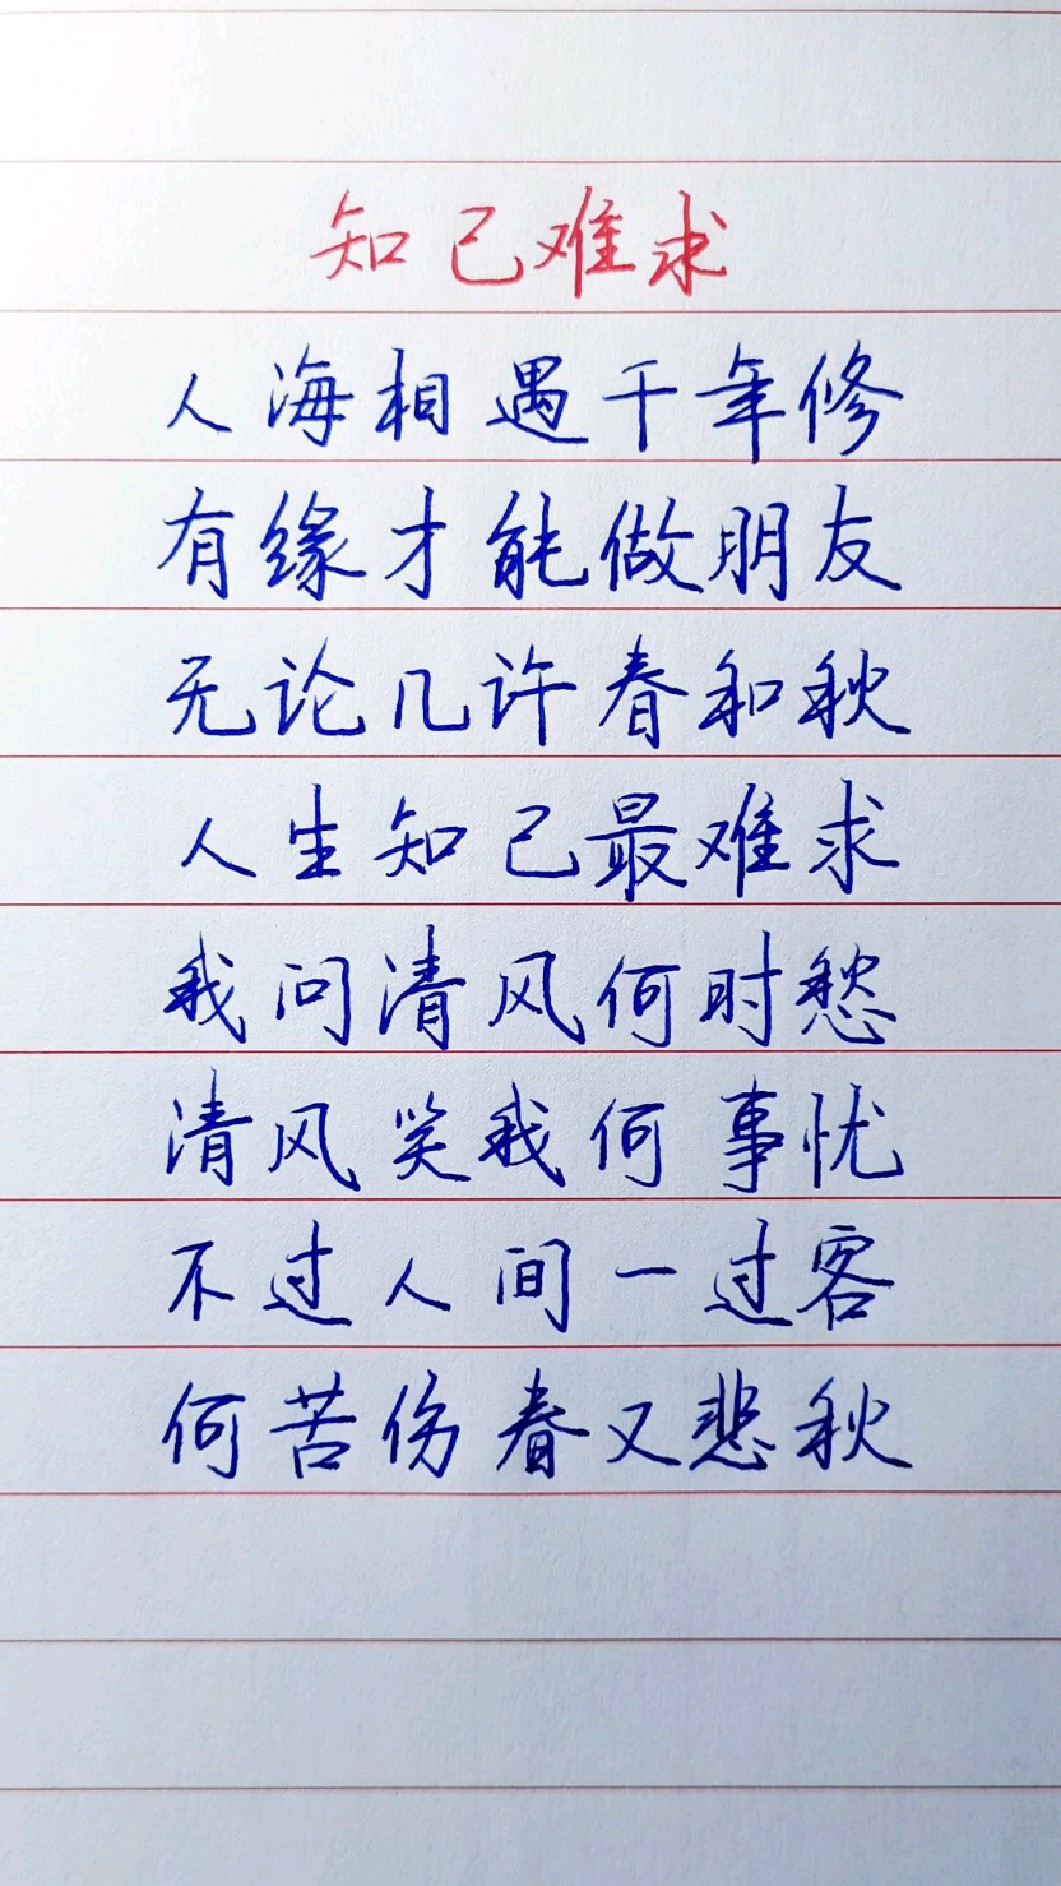 知己难求
人海相遇千年修
有缘才能做朋友
无论几许春和秋
人生知己最难求
我问清风何时愁
清风笑我何事忧
不过人间一过客
何苦伤春又悲秋